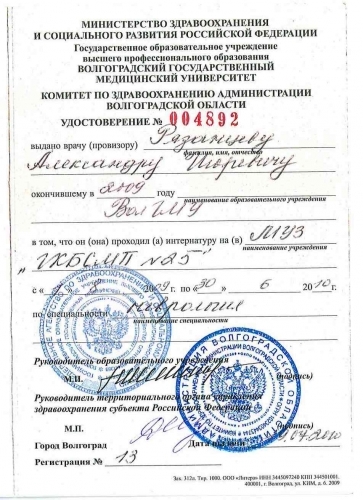 МИНИСТЕРСТВО ЗДРАВООХРАНЕНИЯ
И СОЦИАЛЬНОГО РАЗВИТИЯ РОССИЙСКОЙ ФЕДЕРАЦИИ
Государственное образовательное учреждение
высшего профессионального образования
ВОЛГОГРАДСКИЙ ГОСУДАРСТВЕННЫЙ
МЕДИЦИНСКИЙ УНИВЕРСИТЕТ
КОМИТЕТ ПО ЗДРАВООХРАНЕНИЮ АДМИНИСТРАЦИИ
ВОЛГОГРАДСКОЙ ОБЛАСТИ
УДОСТОВЕРЕНИЕ № 004892
выдано врачу (провизору)
фамилия, имя, отчество
Александру Игоревичу
окончившему в 2009 году
наименование образовательного учреждения
ВолГМУ
в том, что он (она) проходил (а) интернатуру на (в) МУЗ
наименование учреждения
"ГКБСМП №25"
с « 2009 г по «30» 6 2010 г.
по специальности неврология
наименование специальности
Руководитель образовательного учреждения
М.П. (подпись)
Руководитель территориального органа управления
здравоохранения субъекта Российской Федерации
М.П. (подпись)
Город Волгоград Дата выдачи
Регистрация № 13
Зак. 312а. Тир. 1000. ООО
400001, г. Волгоград, ул. КИМ, д. 6. 2009